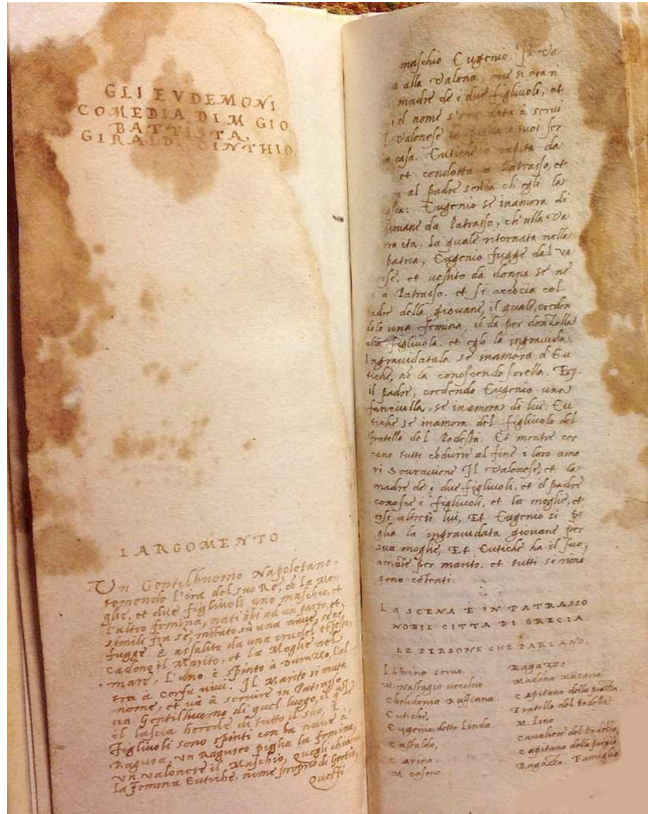 GLI EVDEMONI
COMEDIA DI M GIO
BATTISTA
GIRALDI CINTHIO
L ARGOMENTO
Un Gentilhuomo Napoletano,
temendo l'ira del suo Re, cõ la Mo
glie, et due figliuoli uno maschio, et
l'altro femina, nati ad un parto, et
simili fra se, mõtato sù una nave, se ne
fugge. È assalito da una crudel
cadono il Marito, et la Moglie nel
mare, L'uno è spinto à Durazzo, l'al
tra à Corfù vivi. Il Marito si muta
nome, et và à servire in Patrasso
un Gentilhuomo di quel luogo, il qĩl
il lascia herede di tutto il suo, I
Figliuoli sono spinti con la nave à
Ragusa, un Raguseo piglia la femina,
un valonese il Maschio,
la femina Eutiche, nome proprio di
Questi
maschio Eugenio. Il Va
alla Valona, ove si eran
madre de i due figliuoli, et
il nome s'era data à servi
Valonese
in casa. Eutiche è rapita da
et condotta a Patrasso, et
al padre senza ch'egli la
Eugenio se inamora di
giovane da Patrasso, ch'alla Va
la quale ritornata nella
patria, Eugenio fugge dal Va
et vestito da donna se ne
à Patrasso. et si accõcia col
padre della giovane, il quale, creden
dolo una femina, il dà per donzella
alla figliuola. et egli la ingravida.
Ingravidatala se inamora d'Eu
tiche, nõ la conoscendo sorella. Et
il padre, credendo Eugenio una
fanciulla, se inamora di lui. Eu
tiche se inamora del figliuolo del
fratello del Podestà. Et mentre cer
cano tutti cõdurre al fine i loro amo
ri sopraviene Il Valonese, et la
madre de i due figliuoli, et il padre
conosce i figliuoli, et la moglie, et
essi altresi lui, Et Eugenio si pi
glia la ingravidata giovane per
sua moglie, Et Eutiche ha il suo
amãte per marito. et tutti se rima
gono cõtenti.
LA SCENA È IN PATRASSO
NOBIL CITTÀ DI GRECIA.
LE PERSONE CHE PARLANO.
servo. Ragazzo
M. vecchio Madona
Capitano della piazza.
Eutiche, Fratello del Podestà
Eugenio, detto Lindo. M. Lino
Castaldo, Cavaliere del Podestà,
Carino. Capitano della
M. Ragazzo. Famiglio